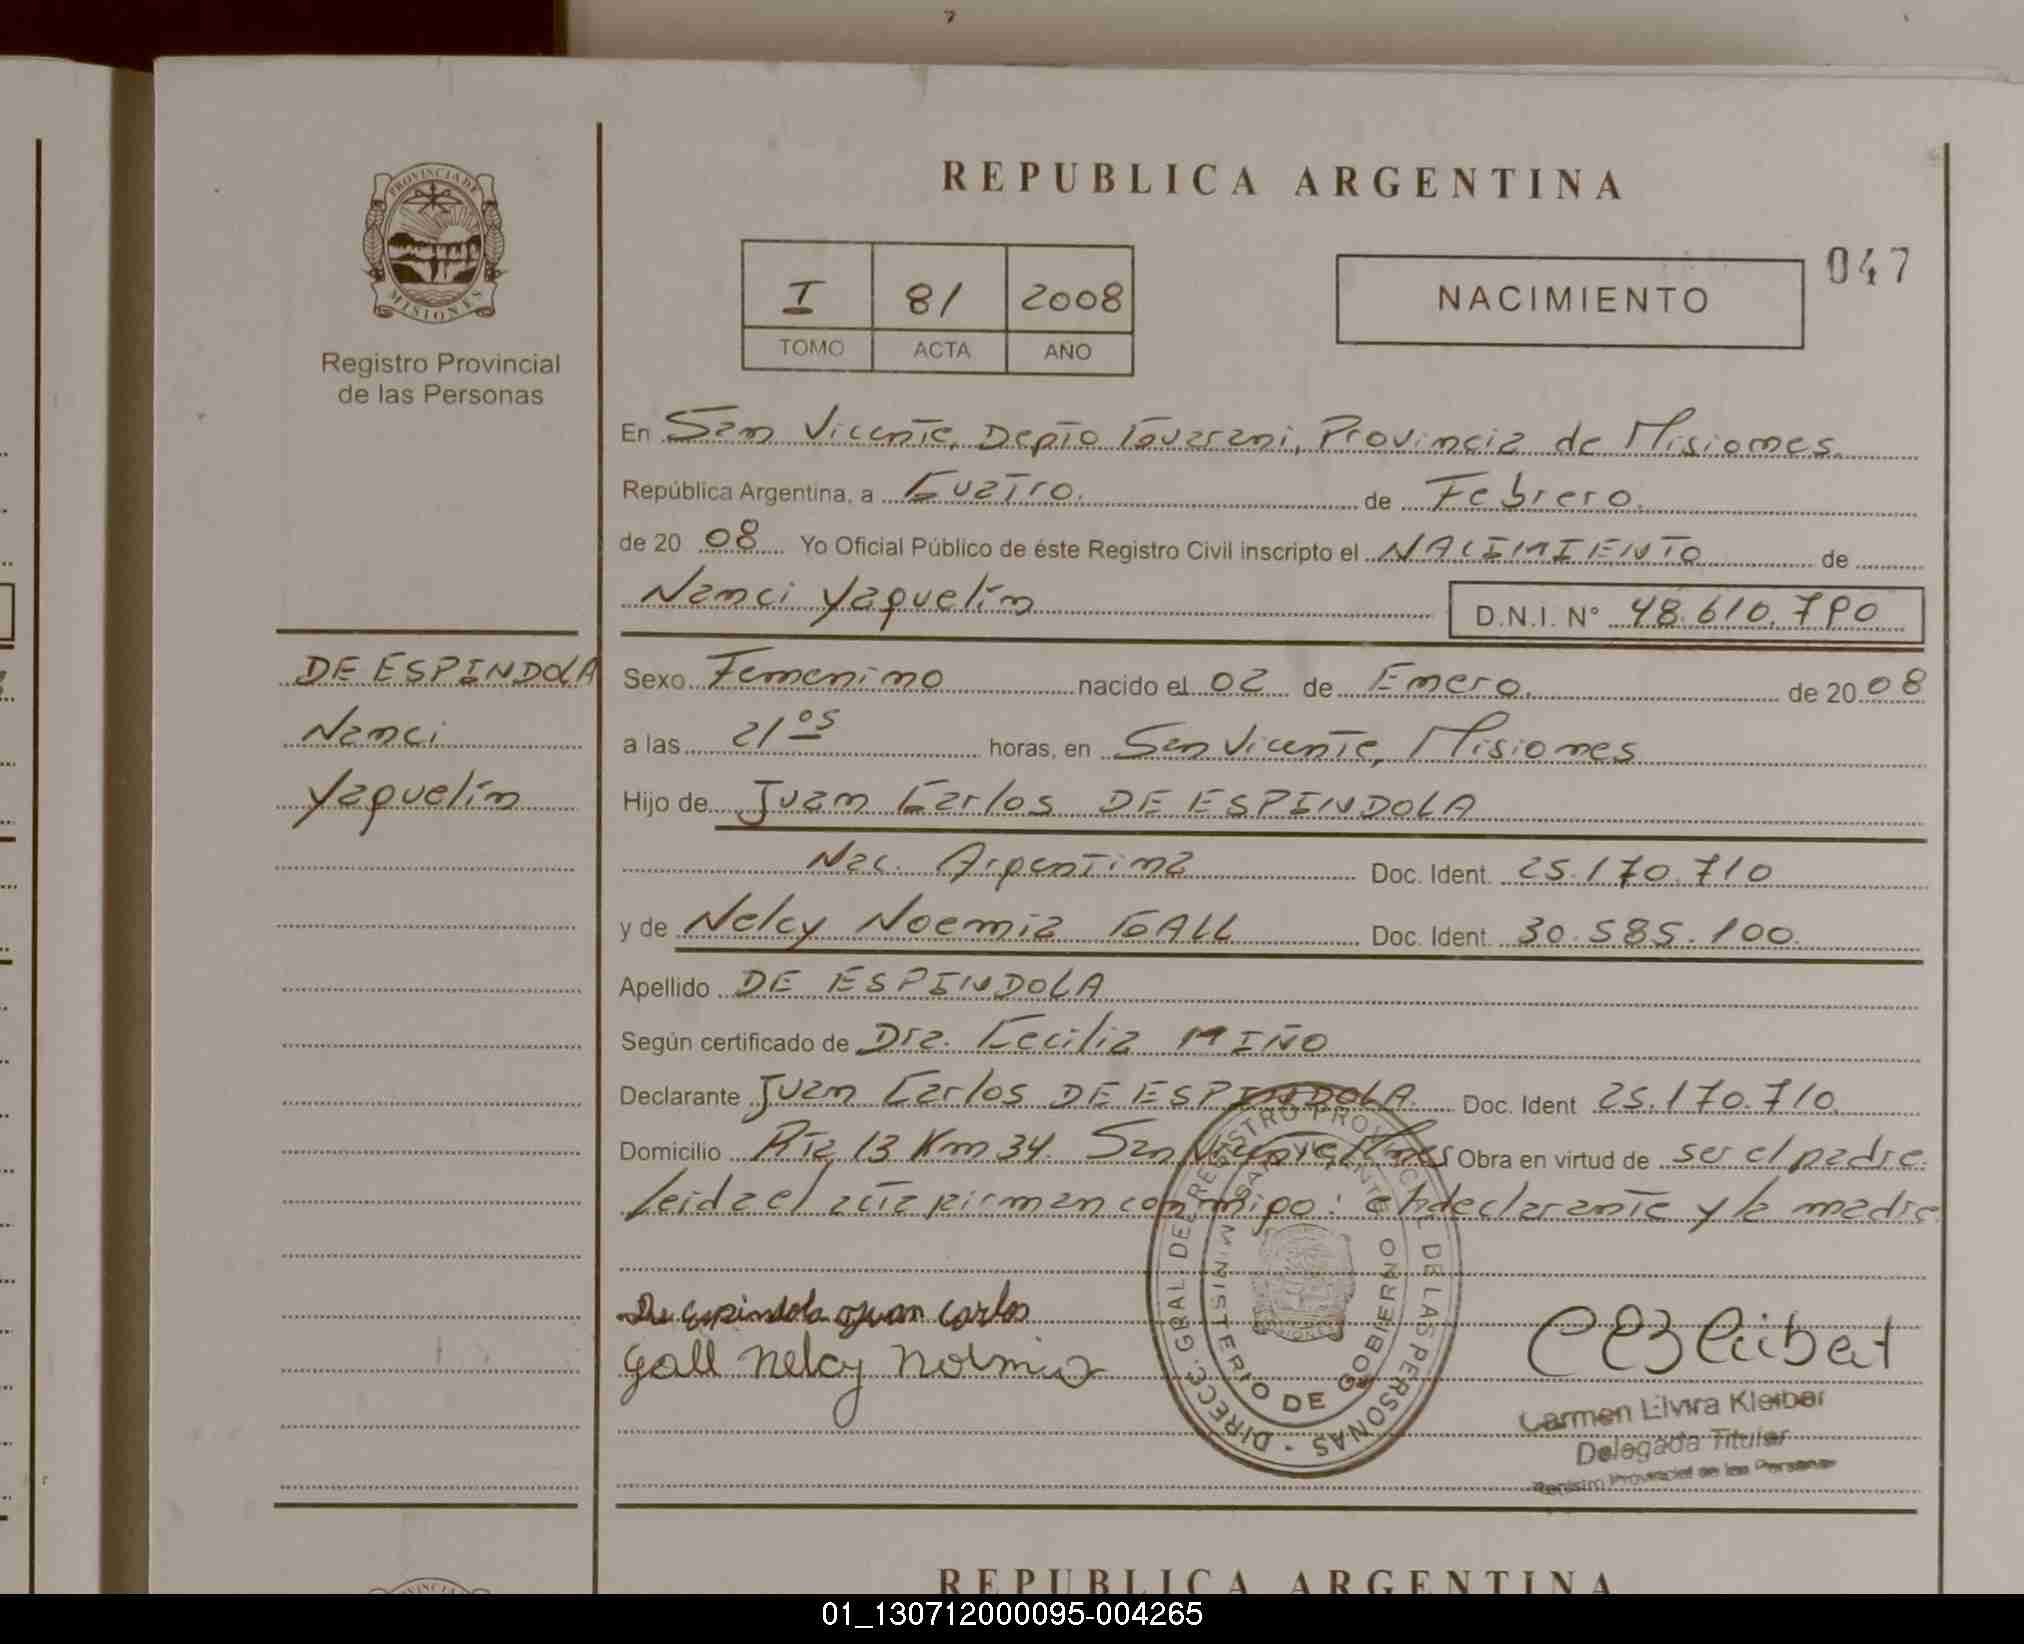 PROVINCIA DE
MISIONES
Registro Provincial
de las Personas
REPUBLICA ARGENTINA
I 81 2008
TOMO ACTA AÑO
NACIMIENTO
047
En San Vicente, Depto Guarani, Provincia de Misiones.
República Argentina, a Cuatro. de Febrero.
de 20 08 Yo Oficial Público de éste Registro Civil inscripto el NACIMIENTO de
Nanci Yaquelín D.N.I. N° 48.610.790
DE ESPINDOLA
Nanci
Yaquelín
Sexo Femenino nacido el 02 de Enero. de 20 08
a las 21 05 horas, en San Vicente, Misiones
Hijo de Juan Carlos DE ESPINDOLA
Nac. Argentina Doc. Ident. 25.170.710
y de Nelcy Noemia GALL Doc. Ident. 30.585.100.
Apellido DE ESPINDOLA
Según certificado de Dra. Cecilia MIÑO
Declarante Juan Carlos DE ESPINDOLA. Doc. Ident 25.170.710.
Domicilio Rta 13 Km 34. San Vicente, Mnes Obra en virtud de ser el padre.
Leida el acta firman conmigo: el declarante y la madre
De Espindola Juan Carlos
Gall Nelcy Noemia
DIRECC. GRAL DEL REGISTRO PROVINCIAL DE LAS PERSONAS -
MINISTERIO DE GOBIERNO
SAN VICENTE
Carmen Elvira Kleiber
Delegada Titular
Registro Provincial de las Personas
REPUBLICA ARGENTINA
01_130712000095-004265